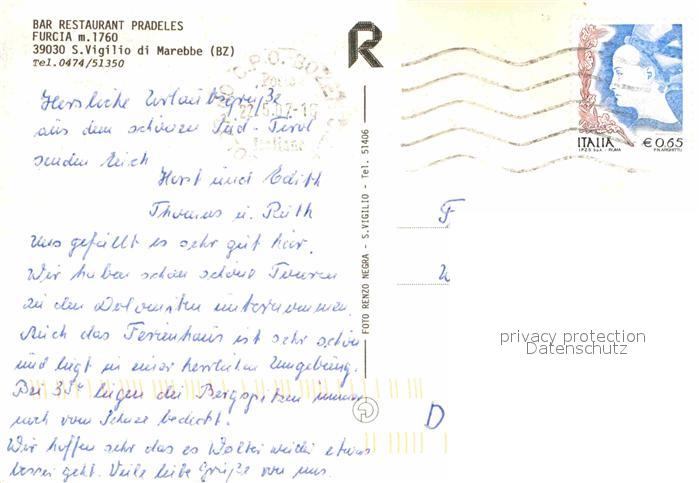 BAR RESTAURANT PRADELES
FURCIA m.1760
39030 S.Vigilio di Marebbe (BZ)
Tel.0474/51350
Herzliche Urlaubsgrüße
aus dem schönen Süd-Tirol
senden Euch
Horst und Edith
Thomas u. Ruth
Uns gefällt es sehr gut hier.
Wir haben schon schöne Touren
in den Dolomiten unternommen.
Auch das Ferienhaus ist sehr schön
und liegt in einer herrlichen Umgebung.
Bei 35° liegen die Bergspitzen immer
noch vom Schnee bedeckt.
Wir hoffen sehr das es Walter wieder etwas
besser geht. Viele liebe Grüße von uns.
R
FOTO RENZO NEGRA - S.VIGILIO - Tel. 51406
C.P.O. BOZE
ITALIA
I.P.Z.S. S.p.A. - ROMA
€ 0,65
F
D
privacy protection
Datenschutz